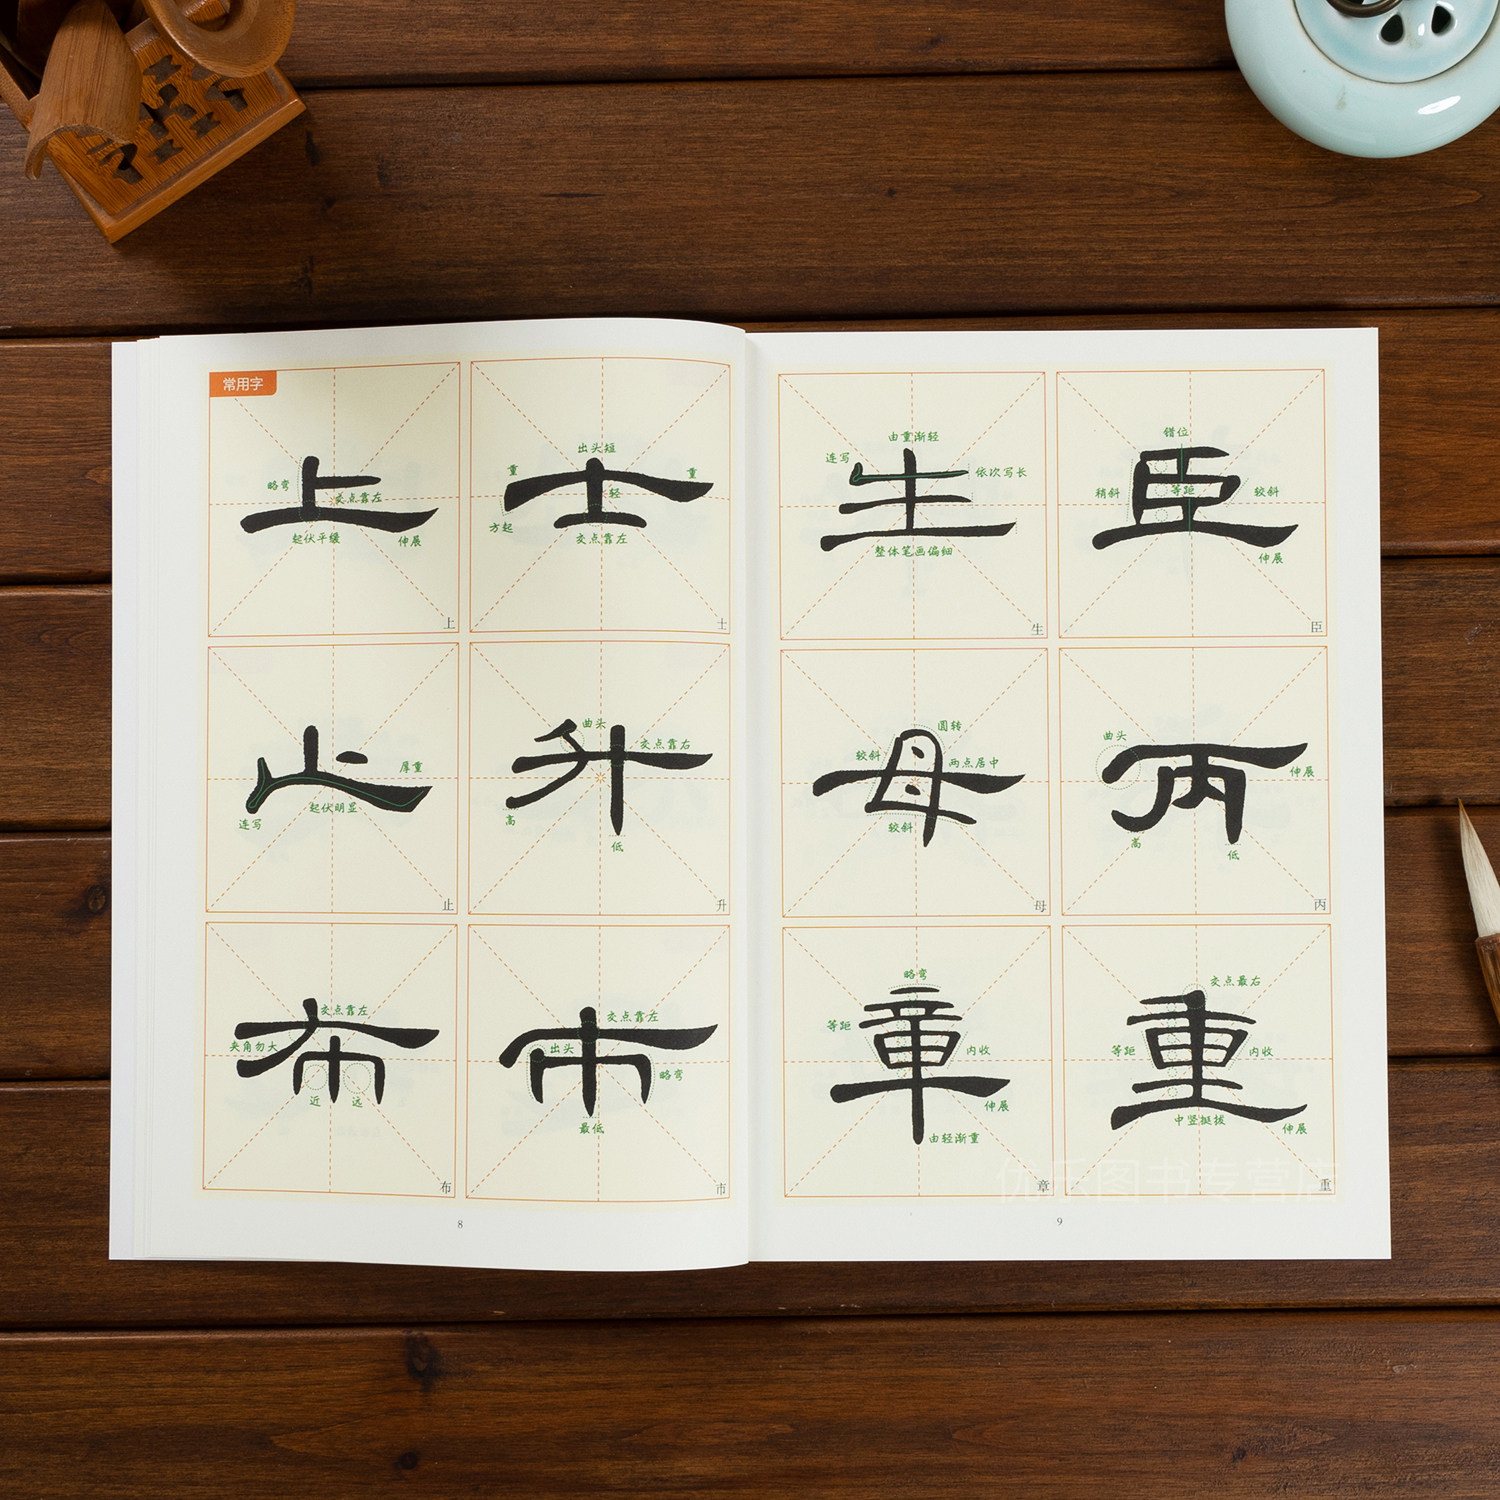 常用字
上
略弯
交点靠左
起伏平缓
伸展
上
士
出头短
重
重
轻
方起
交点靠左
士
止
厚重
起伏明显
连写
止
升
曲头
交点靠右
高
低
升
布
交点靠左
夹角勿大
近
远
布
市
交点靠左
出头
略弯
最低
市
8
生
由重渐轻
连写
依次写长
整体笔画偏细
生
臣
错位
稍斜
等距
较斜
伸展
臣
母
圆转
较斜
两点居中
较斜
母
丙
曲头
伸展
高
低
丙
章
略弯
等距
内收
伸展
由轻渐重
章
重
交点最右
等距
内收
中竖挺拔
伸展
重
9